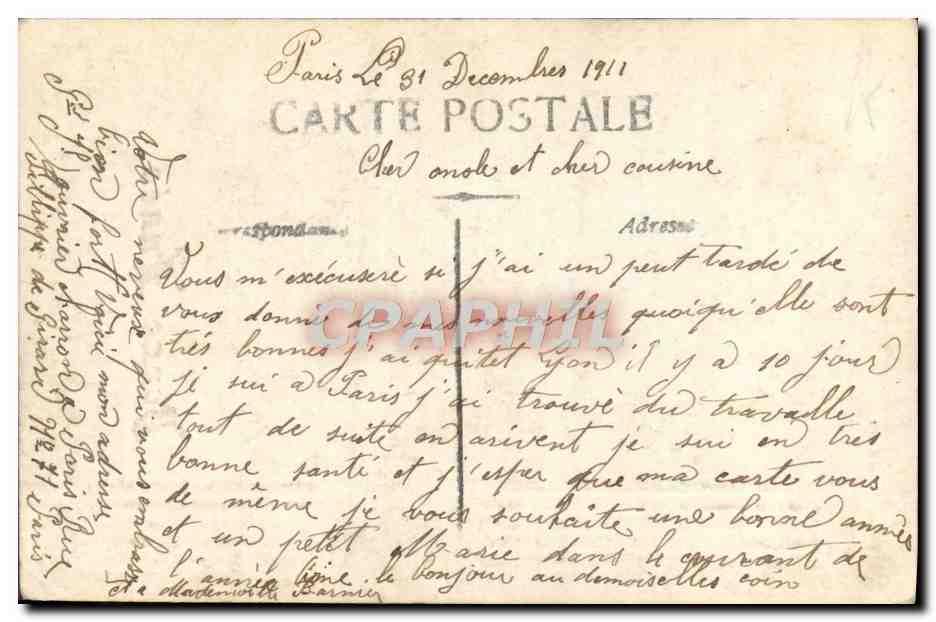 Paris Le 31 Decembres 1911
CARTE POSTALE
Cher oncle et cher cousine
Adresse
Vous m'exécuserè si j'ai un peut tardé de
vous donné de mes nouvelles quoiqu'elle sont
très bonnes j'ai quitet Lyon il y a 10 jour
je sui a Paris j'ai trouvè du travaille
tout de suite en arivent je sui en très
bonne santé et j'esper que ma carte vous
de même je vous souhaite une bonne année
et un petit Marie dans le courant de
l'année le bonjour au demoiselles coin
et a Mademoiselle Barnier
Votre neveux qui vous embrasse
bien fort mon adresse
à Paris Rue
de Girard No 71 Paris
CPAPHIL